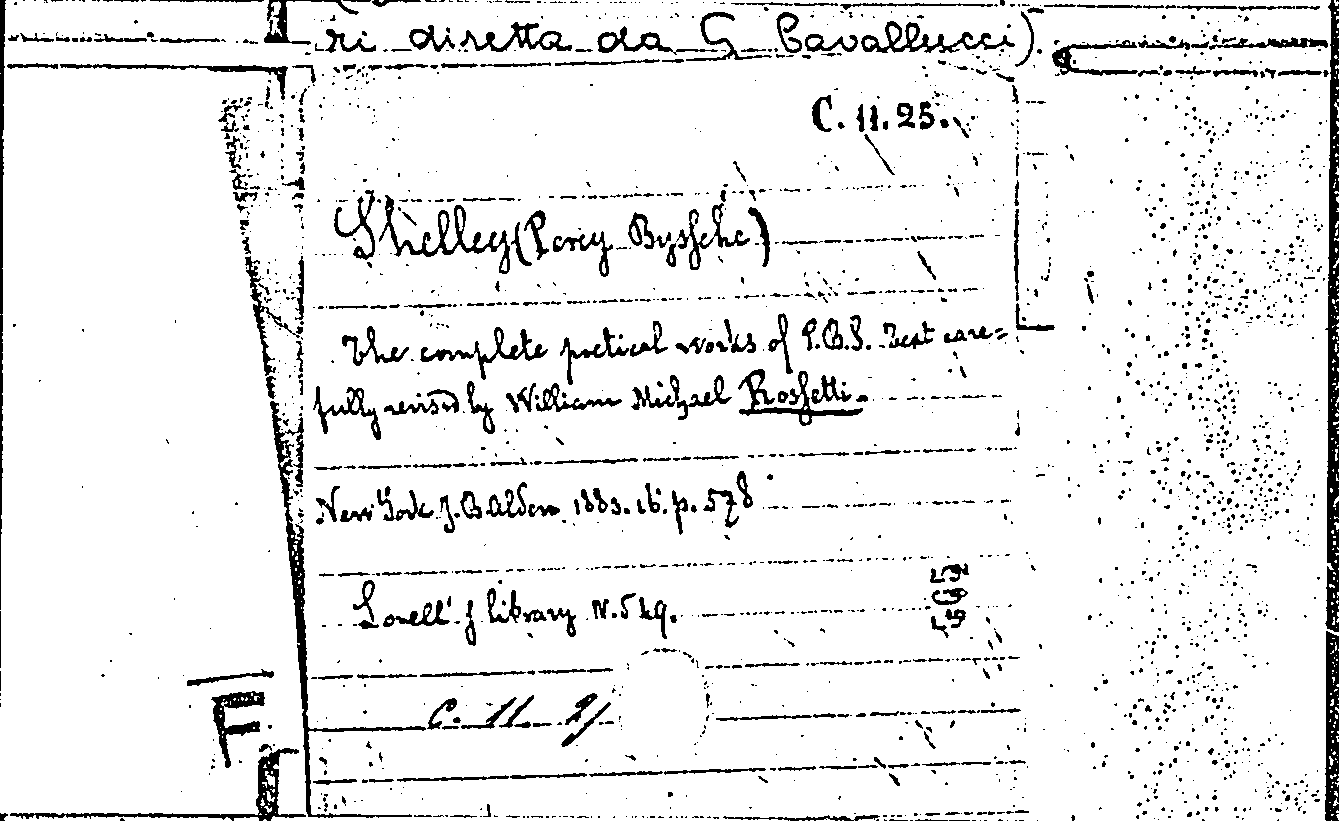 ri diretta da G Cavallucci).
C. 11. 25.
Shelley (Percy Bysshe)
The complete poetical works of P.B.S. Text care=
fully revised by William Michael Rossetti.
New York J.B. Alden 1883. 16. p. 578
Lovell's library N. 549.
C. 11. 25
F